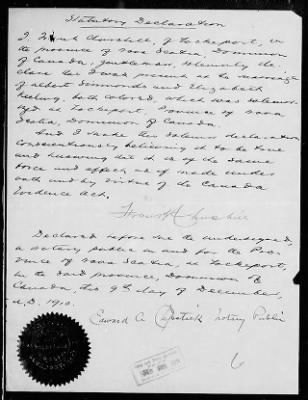 Statutory Declaration
I, Frank Churchill, of Lockeport, in
the province of Nova Scotia, Dominion
of Canada, gentleman, solemnly de-
clare that I was present at the marriage
of Albert Simmonds and Elizabeth
both colored, which was solemn-
ized at Lockeport, Province of Nova
Scotia, Dominion of Canada.
And I make this solemn declaration
conscientiously believing it to be true
and knowing that it is of the same
force and effect as if made under
oath and by virtue of the Canada
Evidence Act.
Frank Churchill
Declared before me the undersigned,
a notary public in and for the Pro-
vince of Nova Scotia, at Lockeport,
in the said province, Dominion of
Canada, this 9th day of December,
A.D. 1910.
Edward A. Notary Public
6